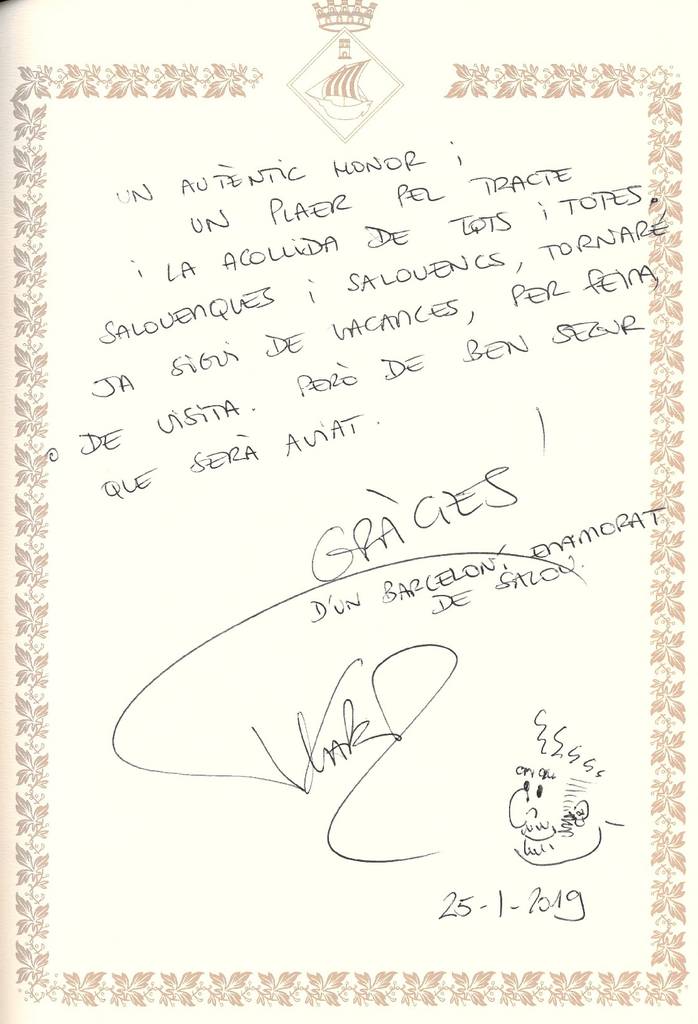 UN AUTÈNTIC HONOR i
UN PLAER PEL TRACTE
i LA ACOLLIDA DE TOTS i TOTES.
SALOUENQUES i SALOUENCS, TORNARÉ
JA SIGUI DE VACANCES, PER FEINA,
O DE VISITA. PERÒ DE BEN SEGUR
QUE SERÀ AVIAT.
GRÀCIES!
D'UN BARCELONÍ ENAMORAT
DE SALOU.
25-1-2019